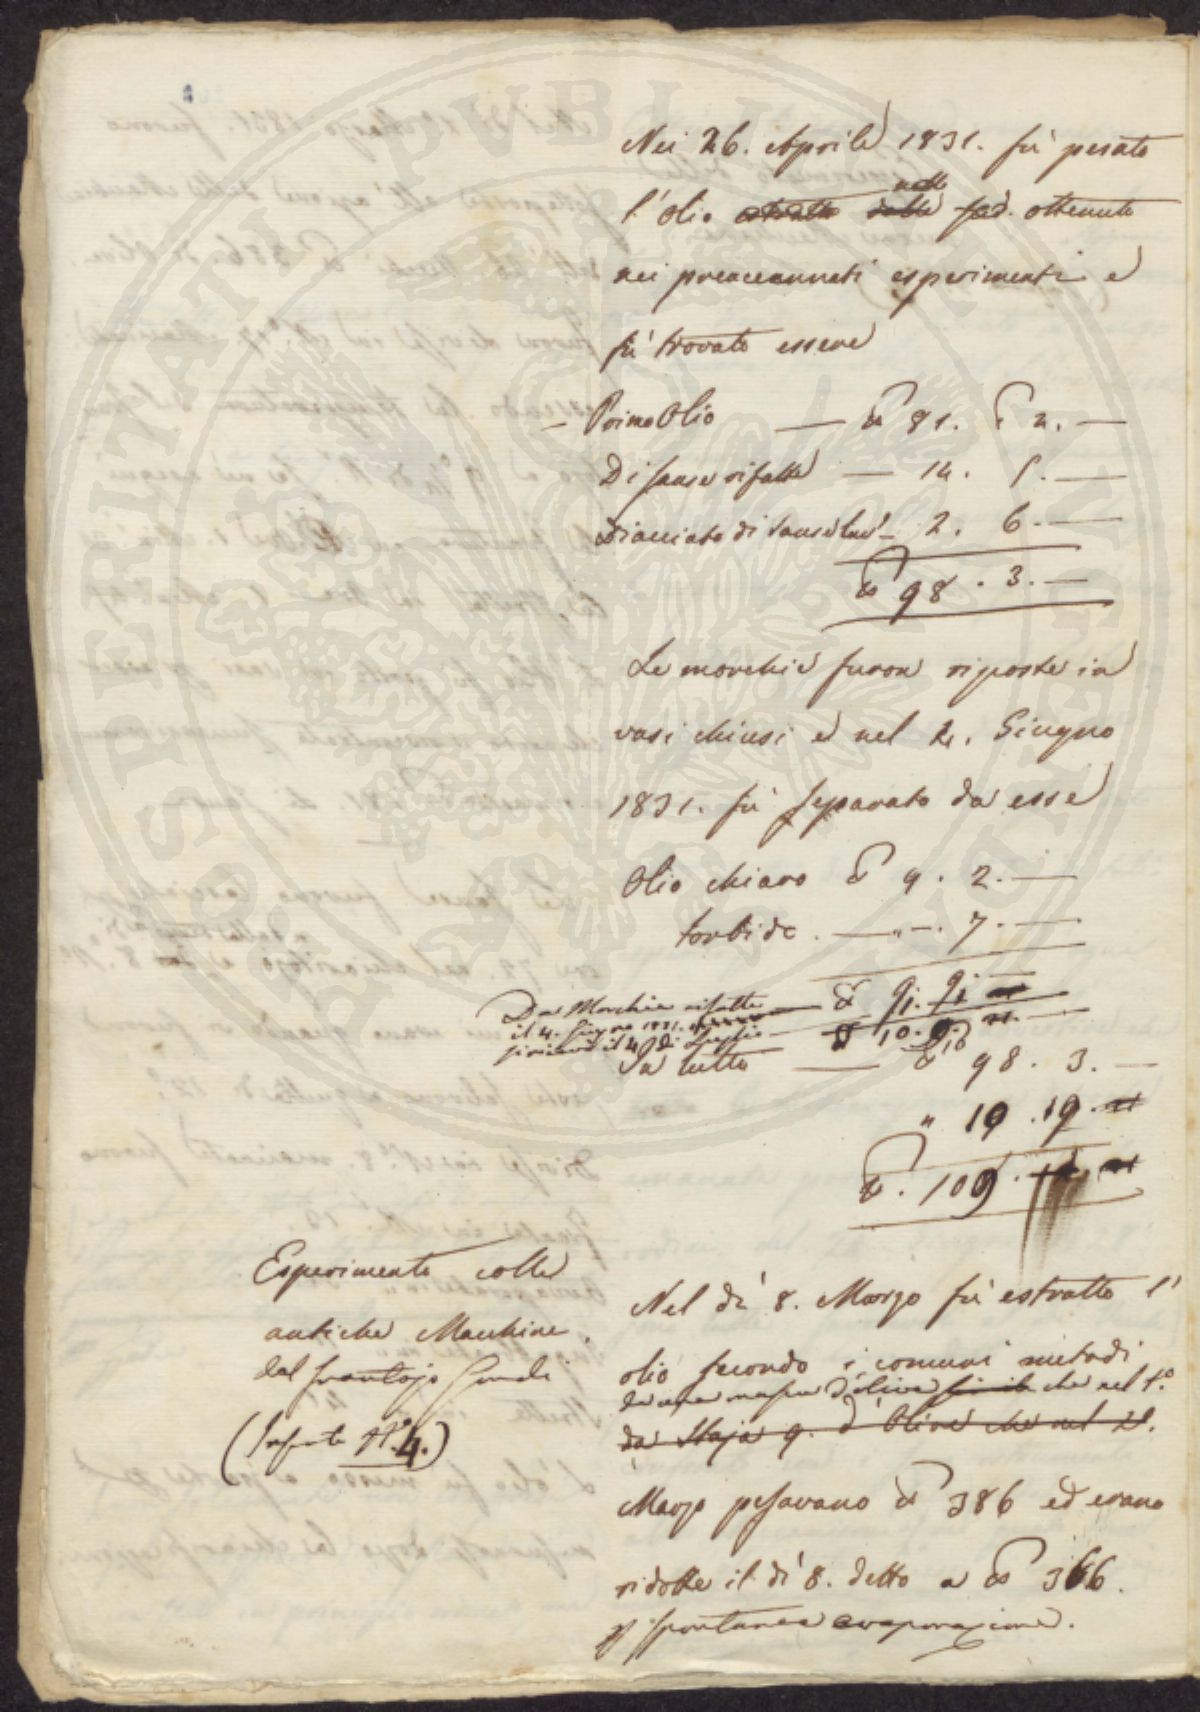 Nei 26. Aprile 1831. fù pesato
l'olio estratto dalle nette sud. ottenuto
nei preaccennati esperimenti e
fù trovato essere
Primo Olio — ℔ 81. 2. —
Di sanse rifatte — 14. —
Diacciato di sanse — 2. 6. —
℔ 98. 3. —
Le morchie furon riposte in
vasi chiusi e nel 4. Giugno
1831. fù separato da esse
Olio chiaro ℔ 9. 2. —
torbido. — „ —. 7. —
Da Morchie rifatte — ℔ 9. 9. —
il 4. Giugno 1831.
il 4 di Luglio — 10.
In tutto — ℔ 98. 3. —
„ 10 . 10.
℔. 109.
Esperimento colle
antiche Macchine
dal frantojo
(Inserto N.° 4.)
Nel dì 8. Marzo fù estratto l'
olio secondo i comuni metodi
da una massa d'olive simile che nel 1.°
da Staja 9. d'Olive che nel 2.°
Marzo pesavano ℔ 386 ed erano
ridotte il dì 8. detto a ℔ 366.
p spontanea evaporazione.